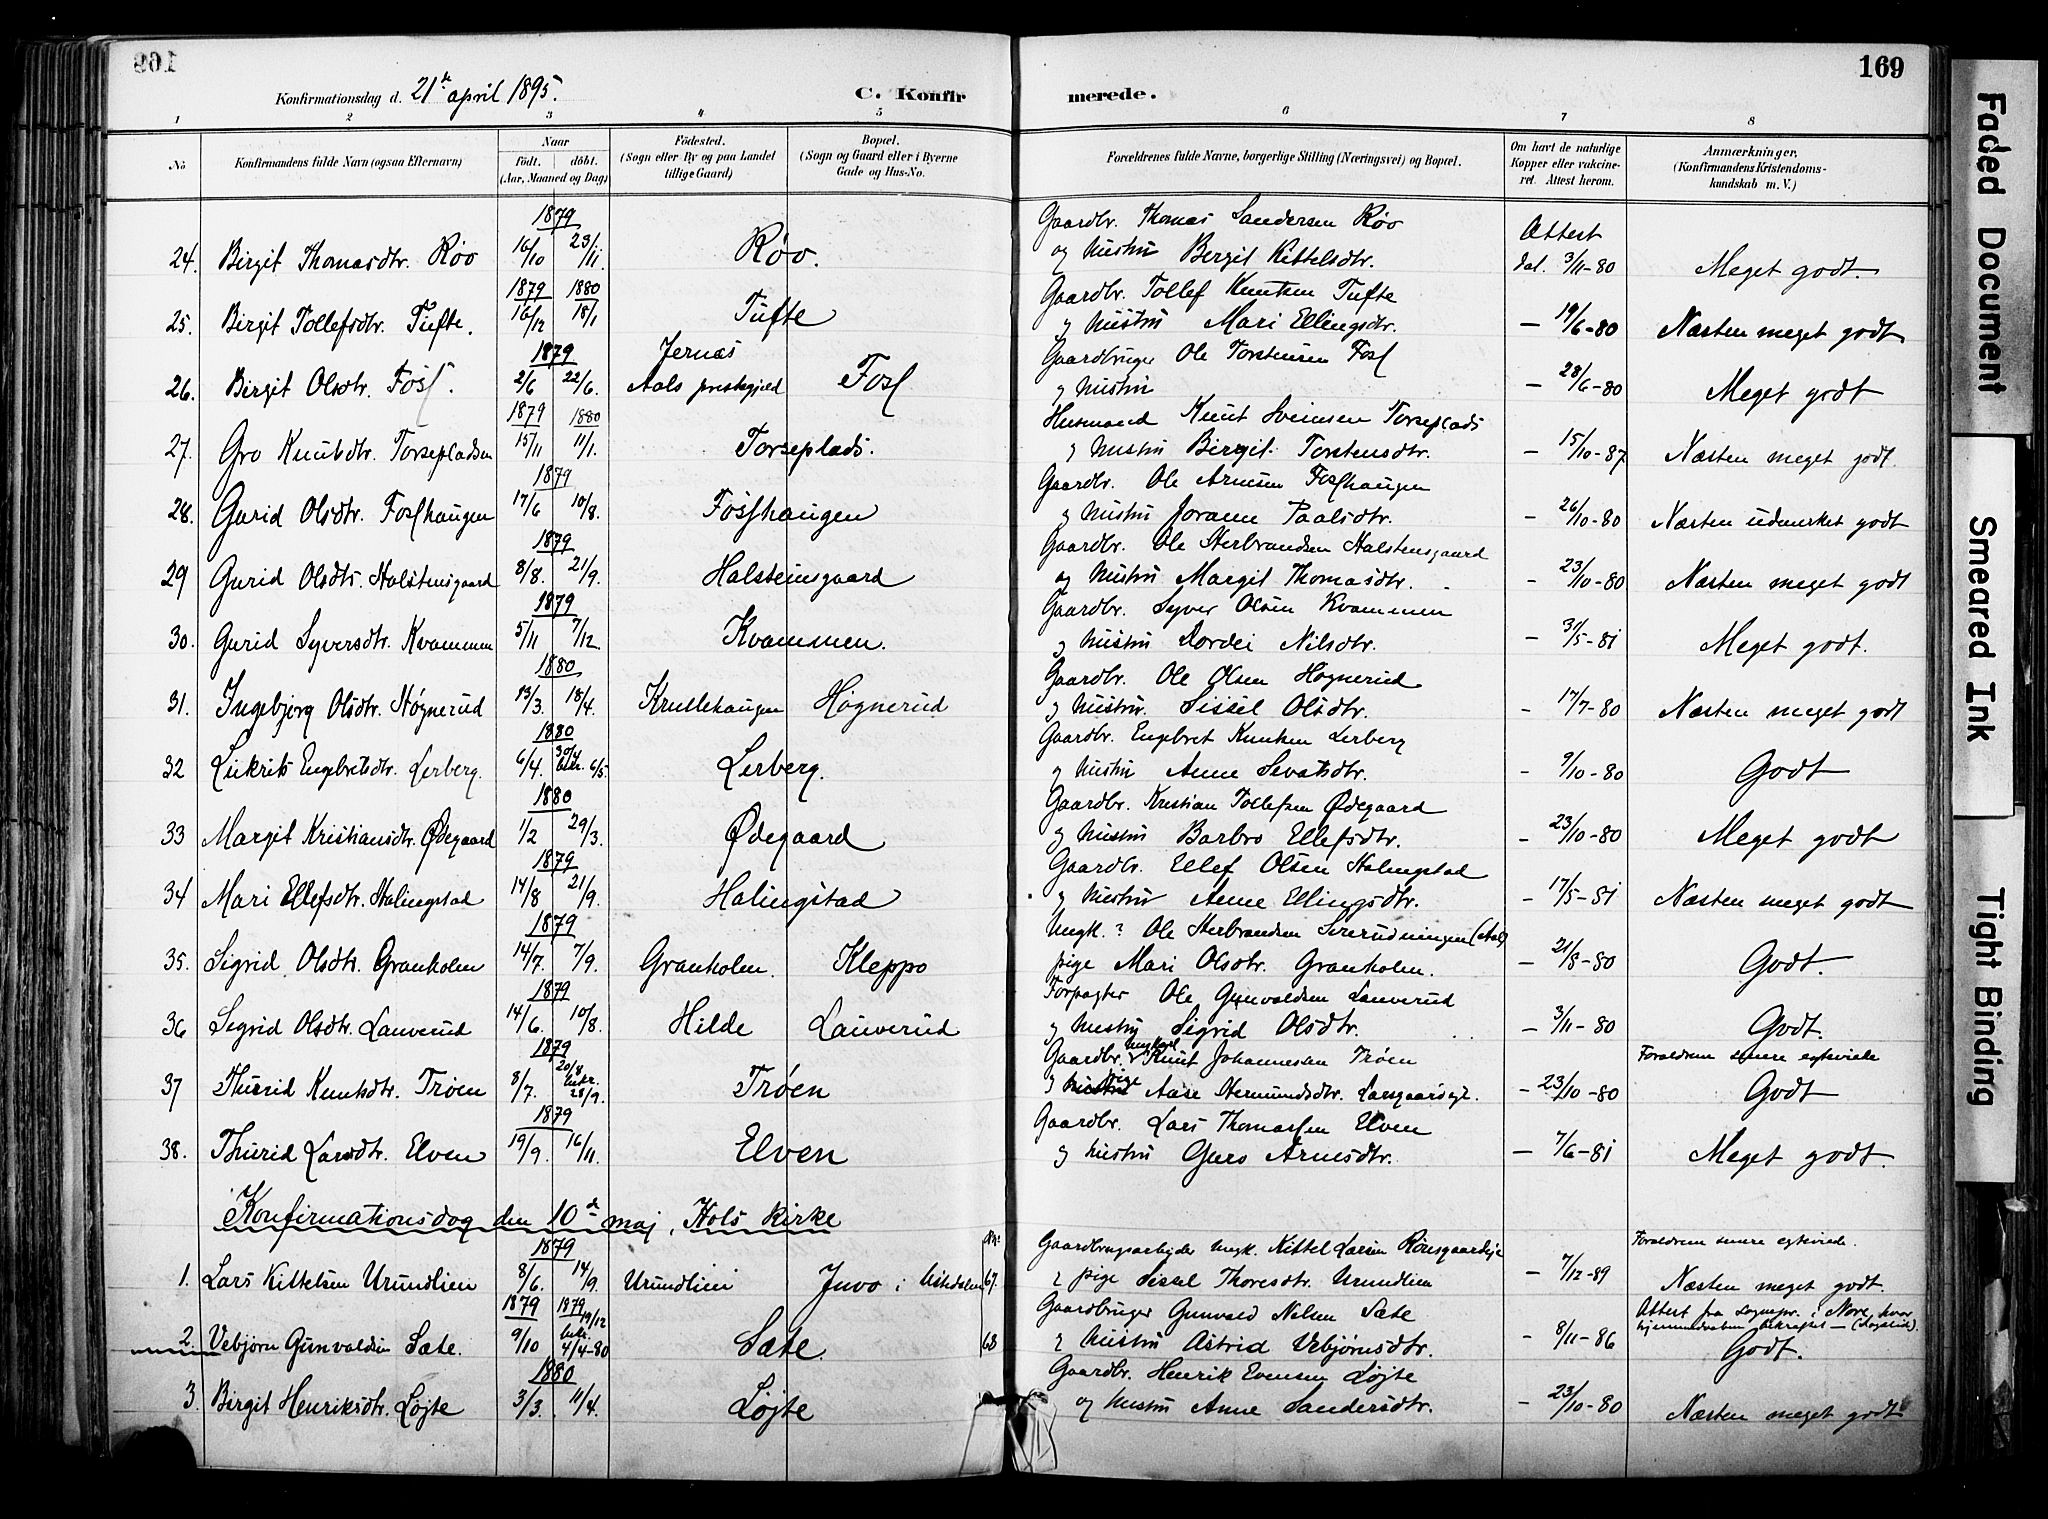 169
Konfirmationsdag d. 21de april 1895. C. Konfirmerede.
1 2 3 4 5 6 7 8
No Konfirmandens fulde Navn (ogsaa Efternavn) Naar födt. döbt. (Aar, Maaned og Dag) Födested. (Sogn eller By og paa Landet tillige Gaard) Bopæl. (Sogn og Gaard eller i Byerne Gade og Hus-No. Forældrenes fulde Navne, borgerlige Stilling (Næringsvei) og Bopæl. Om havt de naturlige Kopper eller vakcineret. Attest herom. Anmærkninger, (Konfirmandens Kristendomskundskab m. V.)
1879 Gaardbr. Thomas Sandersen Røo Attest
24. Birgit Thomasdtr. Røo 16/10 23/11. Røo. og Hustru Birgit Kittelsdtr. dat. 3/11-80 Meget godt.
1879 1880 Gaardbr. Tollef Knutsen Tufte
25. Birgit Tollefsdtr. Tufte. 16/12 18/1 Tufte og Hustru Mari Ellingsdtr. — 19/6-80 Næsten meget godt
1879 Jernæs Gaardbruger Ole Torstensen Fosſ
26. Birgit Olsdtr. Fosſ. 2/6 22/6. Aals prestegjæld Fosſ og Hustru — 28/6-80 Meget godt
1879 1880 Husmand Knut Svensen Torseplads
27. Gro Knutsdtr. Torsepladsen 15/11 11/1. Torseplads. og Hustru Birgit Torstensdtr. — 15/10-87 Næsten meget godt.
1879 Gaardbr. Ole Arnesen Fosſhaugen
28. Gurid Olsdtr. Fosſhaugen 17/6 10/8. Fosſhaugen og Hustru Joranne Paalsdtr. - 26/10-80 Næsten udmerket godt
1879 Gaardbr. Ole Herbrandsen Halstensgaard
29 Gurid Olsdtr. Halstensgaard 8/8. 21/9. Halsteinsgaard og Hustru Margit Thomasdtr. - 23/10-80 Næsten meget godt
1879 Gaardbr. Syver Olsen Kvammen
30. Gurid Syversdtr. Kvammen 5/11 7/12. Kvammen. og Hustru Dordei Nilsdtr. — 31/5-81 Meget godt.
1880 Gaardbr. Ole Olsen Høgnerud
31. Ingebjørg Olsdtr. Høgnerud 13/3. 18/4. Krullehaugen Høgnerud og Hustru Sissel Olsdtr. - 17/7-80 Næsten meget godt
1880 Gaardbr. Engebret Knutsen Lerberg
32 Engebretsdtr. Lerberg. 6/4. 30/4 bekr. 6/5. Lerberg. og Hustru Anne Sevatsdtr. - 9/10-80 Godt
1880 Gaardbr. Kristian Tollefsen Ødegaard
33 Margit Kristiansdtr. Ødegaard 1/2 29/3. Ødegaard og Hustru Barbro Ellefsdtr. - 23/10-80 Meget godt
1879 Gaardbr. Ellef Olsen Halingstad
34 Mari Ellefsdtr. Halingstad 14/8 21/9. Halingstad og Hustru Anne Ellingsdtr. - 17/5-81 Næsten meget godt
1879 Ungk. ? Ole Herbrandsen (Aal)
35. Sigrid Olsdtr. Granholm 14/7. 7/9. Granholm. Kleppo pige Mari Olsdtr. Granholm. — 21/8-80 Godt.
1879 Forpagter Ole Gunvaldsen Lauverud
36 Sigrid Olsdtr. Lauverud 14/6. 10/8. Hilde Lauverud og Hustru Sigrid Olsdtr. — 3/11-80 Godt.
1879 Gaardbr. ungkarl Knut Johannesen Trøen Forældrene senere egteviede
37 Thurid Knutsdtr. Trøen 8/7. 20/8 bekr. 28/9. Trøen og Hustru pige Aase Hermundsdtr. Larsgaardseje. — 23/10-80 Godt
1879 Gaardbr. Lars Thomassen Elven
38. Thurid Larsdtr. Elven 19/9. 16/11. Elven og Hustru Guro Arnesdtr. — 7/6-81 Meget godt.
Konfirmationsdag den 10de maj, Hols kirke
1879 Nr. Gaardbrugsarbejder ungk. Kittel Larsen Forældrene senere egteviede.
1. Lars Kittelsen Urundlien 8/6. 14/9. Urundlien Juvo i Ustedalen 67. & pige Sissel Thoresdtr. Urundlien — 7/12-89 Næsten meget godt.
1879 1879 Gaardbruger Gunvald Nilsen Sæte Attest fra sognepr. i Nore, hvor
2. Vebjørn Gunvaldsen Sæte. 9/10 19/12 bekr. 4/4-80 Sæte. 68 & Hustru Astrid Vebjørnsdtr. - 8/11-86 hjemmedaaben bekræftet — Godt.
1880 Gaardbr. Henrik Evensen Løjte
3. Birgit Henriksdtr. Løjte 3/3. 11/4. Løjte og Hustru Anne Sandersdtr. - 23/10-80 Næsten meget godt
Faded Document
Smeared Ink
Tight Binding